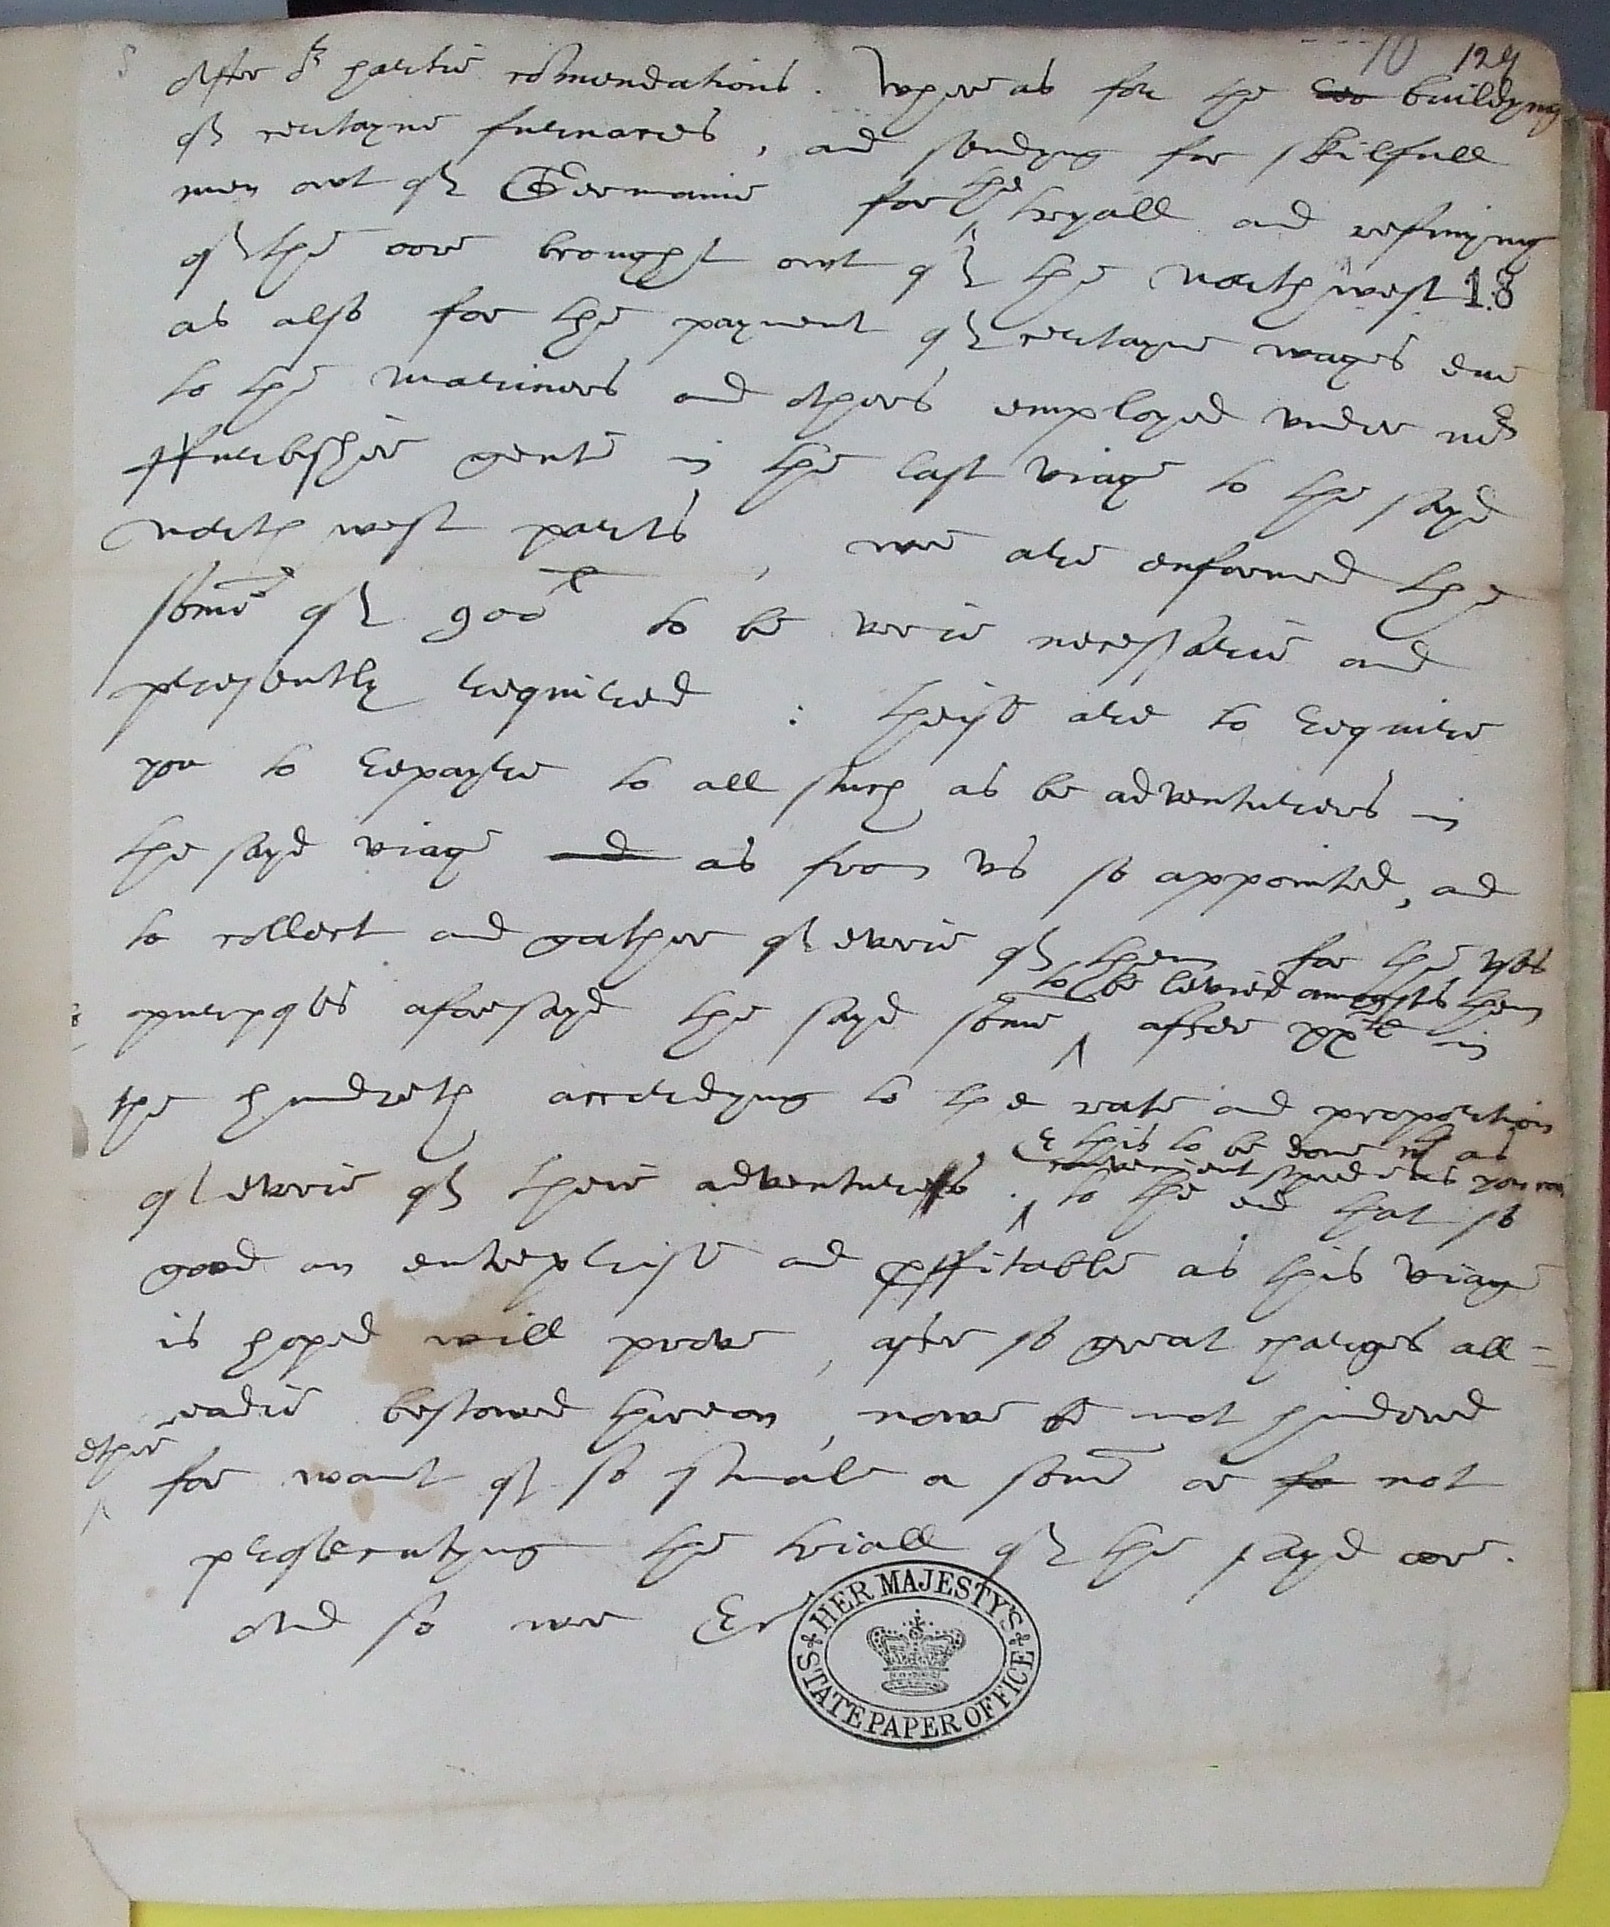 10 124
After or hartie comendations. Whereas for the buildyng
of certayne furnaces, and sendyng for skilfull
men owt of Germanie for the tryall and refinyng
of the oore brought owt of the North west 18
as also for the payment of certayne wages due
to the Mariners and others employed under mr
ffurbisher gent in the last viage to the sayd
North west parts, we are enformed the
some of 900li to be verie necessarie and
presently required : theise are to require
you to repayre to all such as be adventurers in
the sayd viage and as from us so appointed, and
to collect and gather of everie of them for the uses
to be levied amogsts them
& purposes aforesayd the sayd some ^ after xxli in
the hundreth accordyng to the rate and proportion
& this to be done wt as
convenient speede as you may
of everie of their adventures. ^ to the end that so
good an enterprise and proffitable as this viage
is hoped will prove, after so great charges all=
readie bestowed thereon, nowe be not hindered
ether
^ for want of so smale a some or fo not
prosecutyng the triall of the sayd oore.
And so we &c
HER MAJESTY'S
STATE PAPER OFFICE